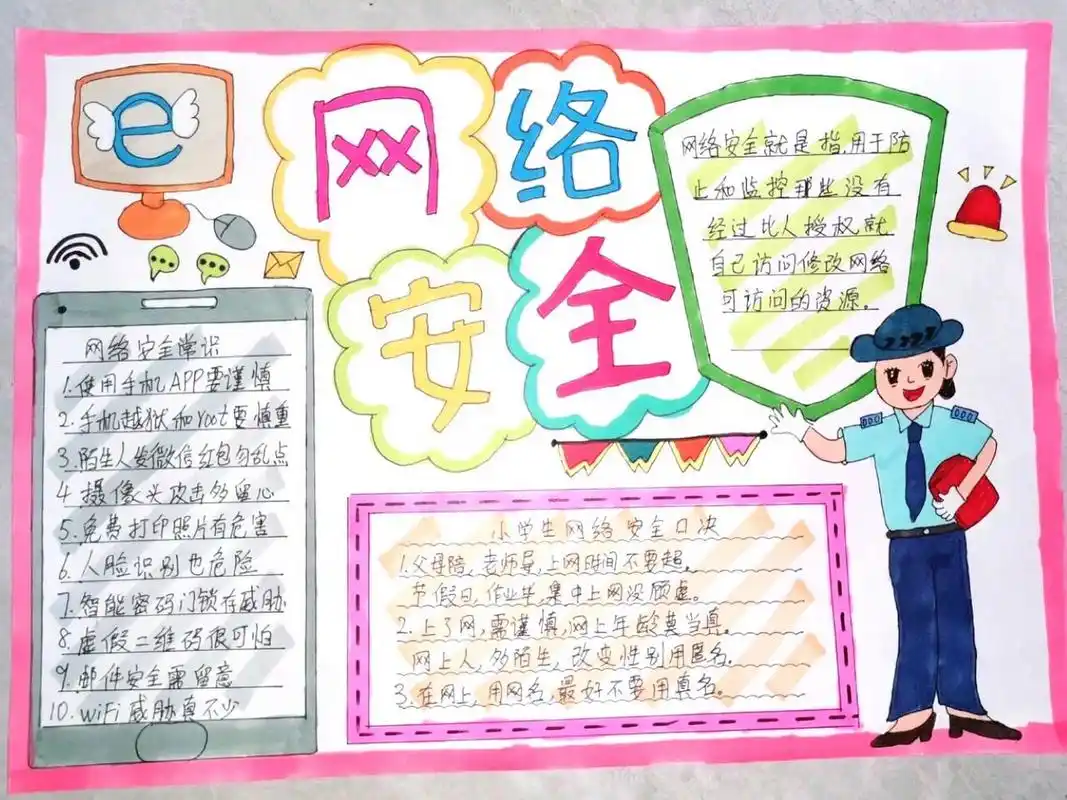 e
网络
安全
网络安全就是指,用于防
止和监控那些没有
经过比人授权,就
自己访问修改网络
可访问的资源。
网络安全常识
1.使用手机APP要谨慎
2.手机越狱和root要慎重
3.陌生人发微信红包勿乱点
4.摄像头攻击多留心
5.免费打印照片有危害
6.人脸识别也危险
7.智能密码门锁存威胁
8.虚假二维码很可怕
9.邮件安全需留意
10.wiFi威胁真不少
小学生网络安全口决
1.父母陪,老师导,上网时间不要超。
节假日,作业毕,集中上网没顾虑。
2.上了网,需谨慎,网上年龄莫当真。
网上人,多陌生,改变性别用匿名。
3.在网上,用网名,最好不要用真名。